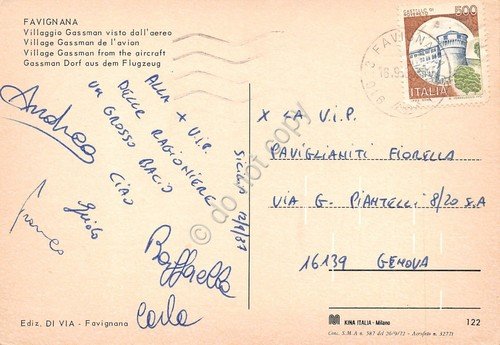 FAVIGNANA
Villaggio Gassman visto dall'aereo
Village Gassman de l'avion
Village Gassman from the aircraft
Gassman Dorf aus dem Flugzeug
ALLA + V.i.P.
DELLE RAGIONIERE
UN GROSSO BACIO
CIAO
SICILIA 12/9/87
Andrea
Franco
Guido
Raffaella
Carla
Ediz. DI VIA - Favignana
500
CASTELLO DI
ITALIA
X LA V.i.P.
PAVIGLIANITI FIORELLA
VIA G. PIANTELLI 8/20 S.A
16139 GENOVA
KINA ITALIA - Milano
122
do not copy